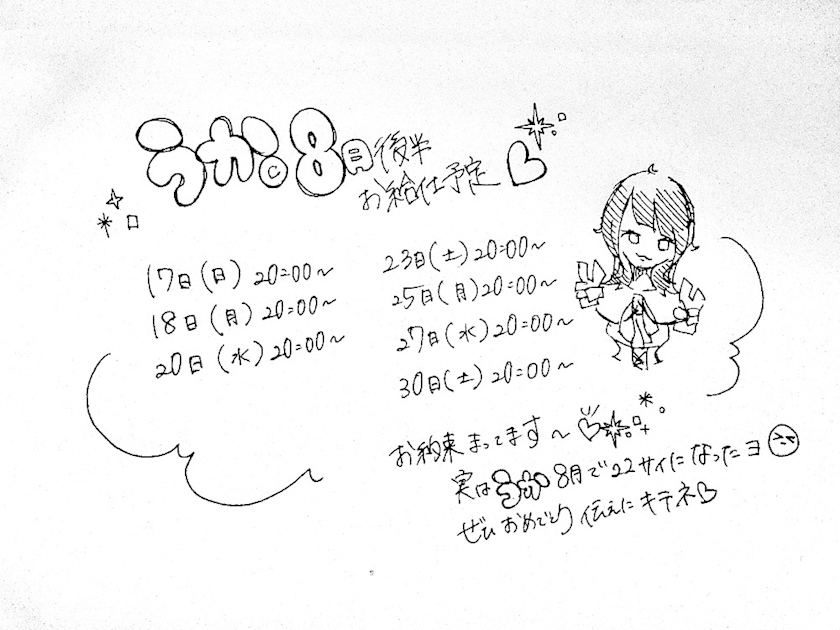 うか。8月後半
お給仕予定♡
17日(日) 20:00〜
18日(月) 20:00〜
20日(水) 20:00〜
23日(土) 20:00〜
25日(月) 20:00〜
27日(水) 20:00〜
30日(土) 20:00〜
お約束まってます〜♡
実はうか8月で22サイになったヨ
ぜひおめでとり伝えにキテネ♡